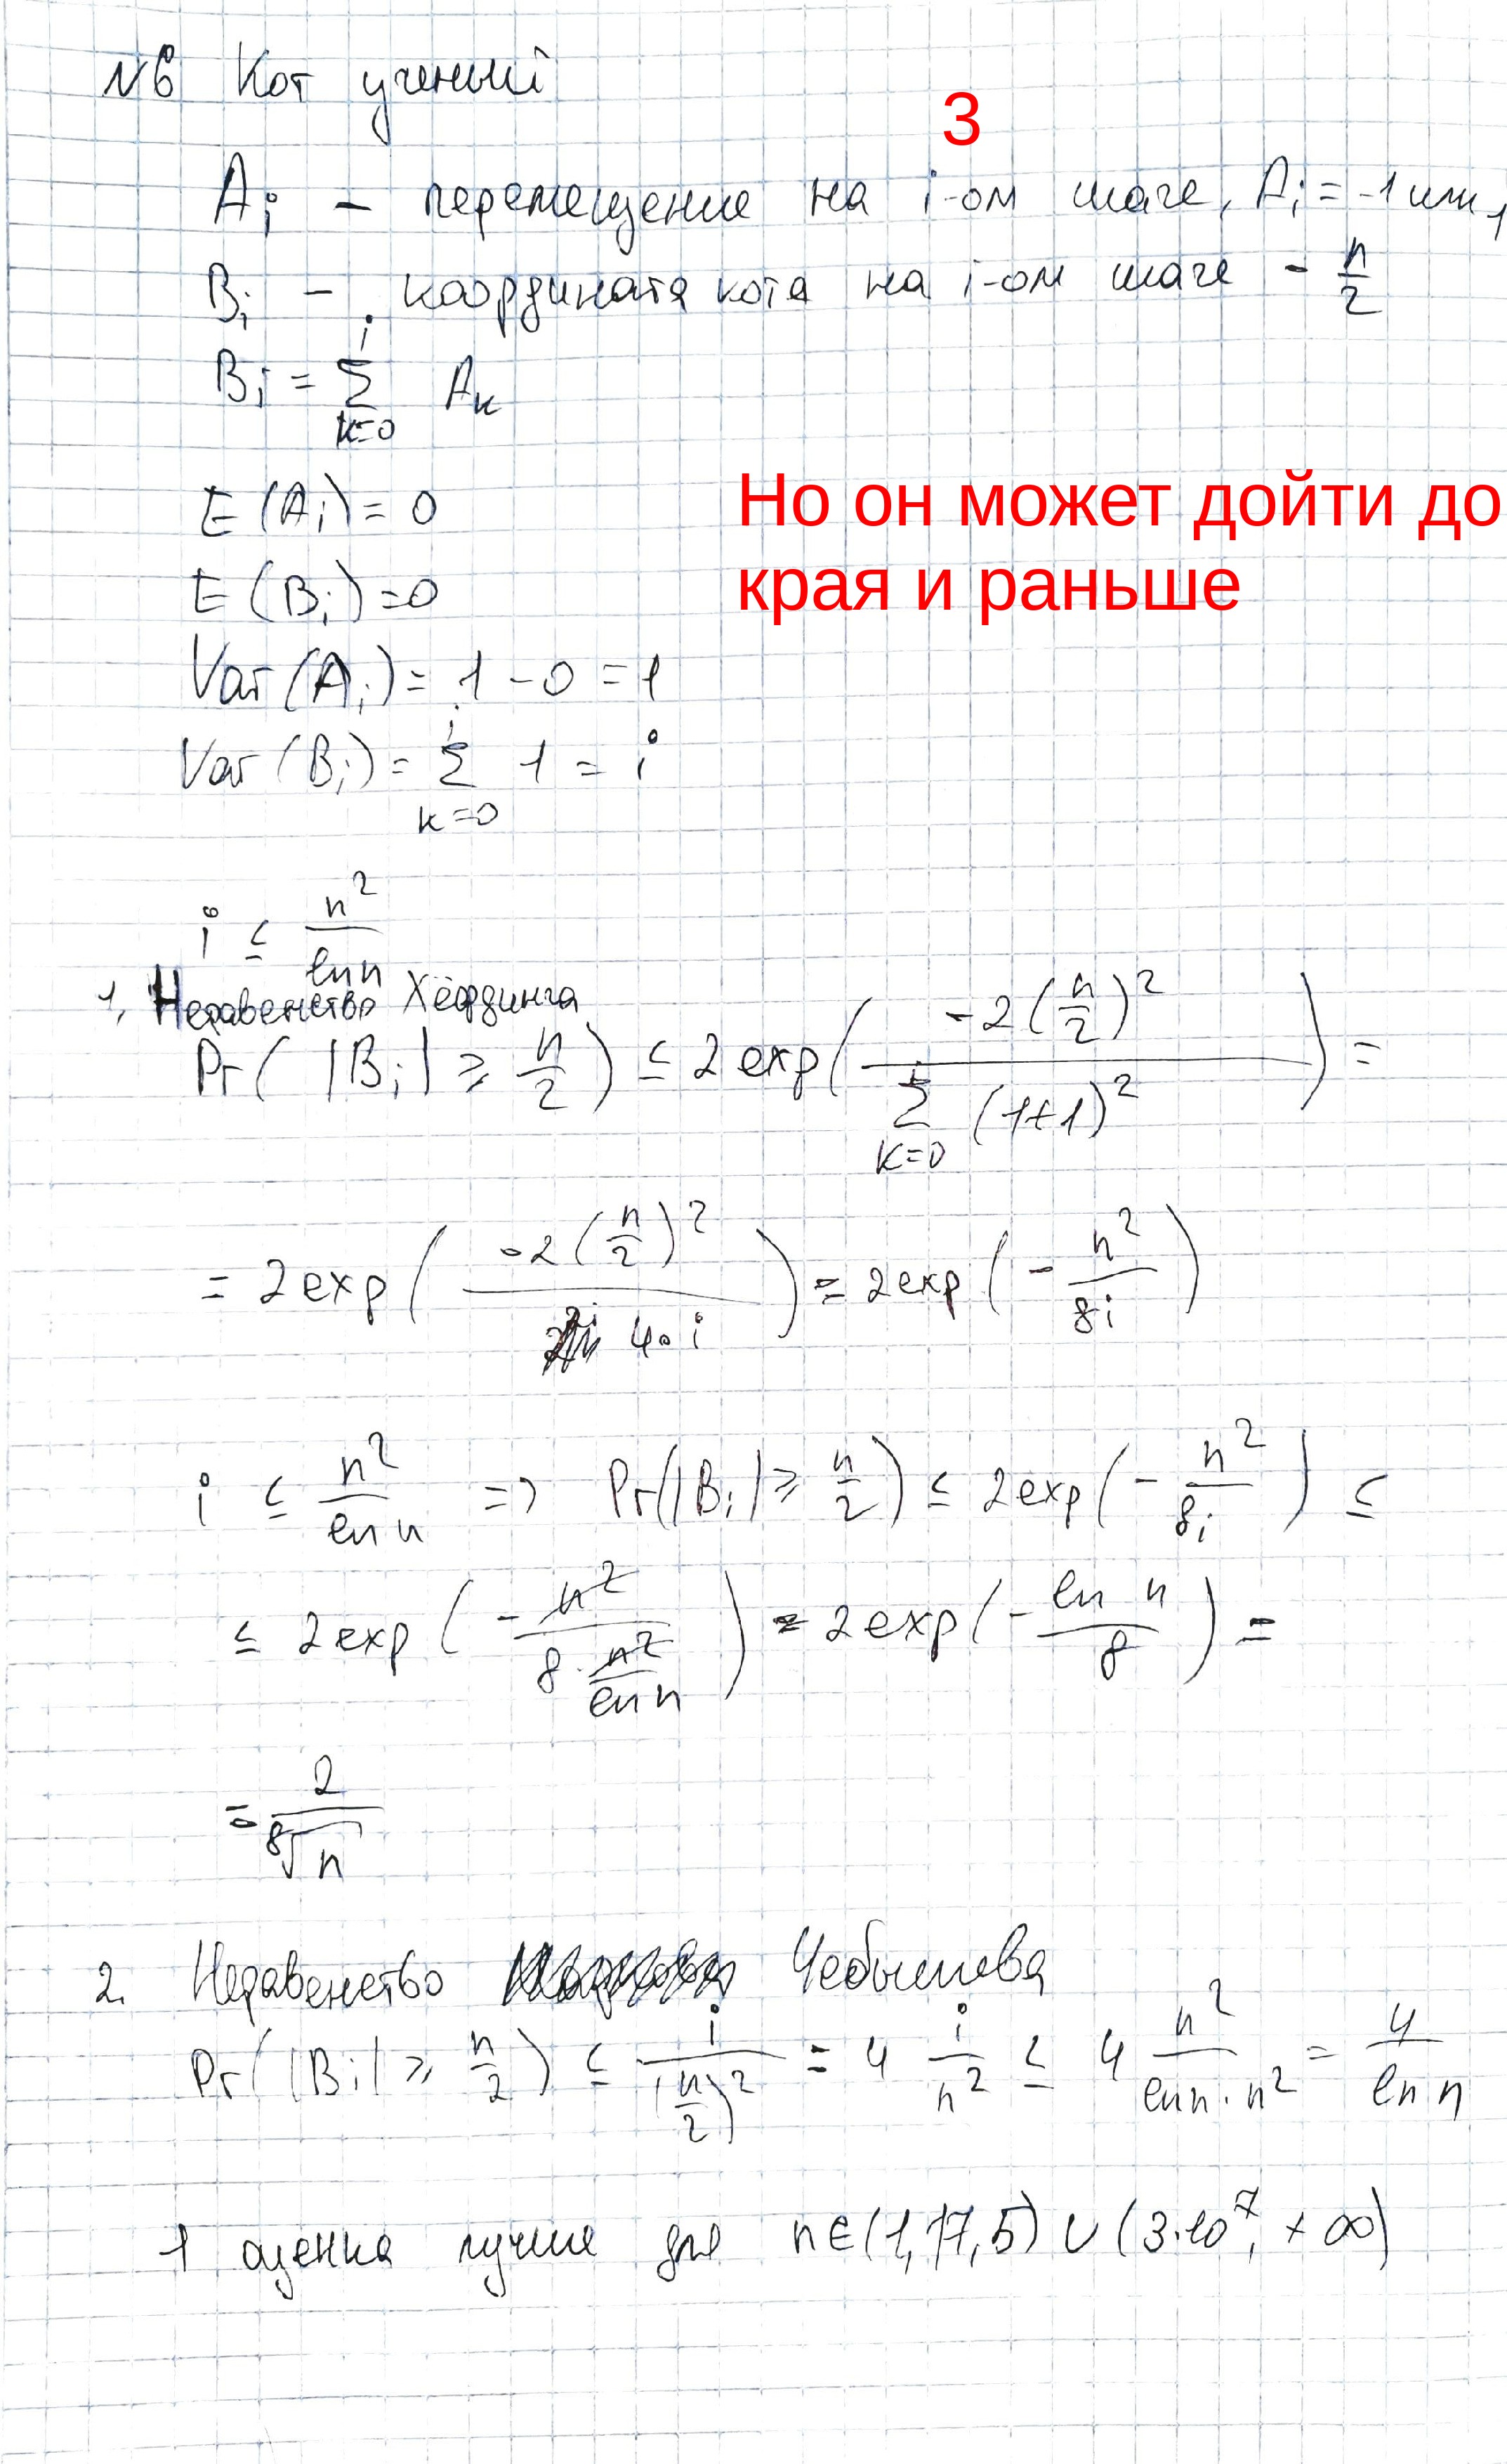 N6 Кот ученый
3
A_i – перемещение на i-ом шаге, A_i = -1 или 1
B_i – координата кота на i-ом шаге - n/2
B_i = Σ_{k=0}^{i} A_k
E(A_i) = 0
Но он может дойти до
края и раньше
E(B_i) = 0
Var(A_i) = 1 - 0 = 1
Var(B_i) = Σ_{k=0}^{i} 1 = i
i ≤ n²/ln n
1, Неравенство Хёфдинга
Pr(|B_i| ≥ n/2) ≤ 2 exp(-2(n/2)² / Σ_{k=0}^{i} (1+1)²) =
= 2 exp(-2(n/2)² / 4·i) = 2 exp(-n²/8i)
i ≤ n²/ln n => Pr(|B_i| ≥ n/2) ≤ 2 exp(-n²/8i) ≤
≤ 2 exp(-n² / 8·n²/ln n) = 2 exp(-ln n/8) =
= 2/⁸√n
2. Неравенство Чебышева
Pr(|B_i| ≥ n/2) ≤ i/(n/2)² = 4 i/n² ≤ 4 n²/ln n·n² = 4/ln n
1 оценка лучше для n∈(1,17,5)∪(3·10⁷, +∞)